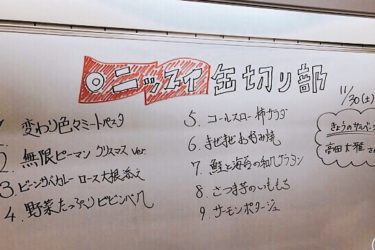 ニッスイ缶切り部
11/30(土)
1. 変わり色々ミートパスタ
2. 無限ピーマン クリスマス ver
3 ビーンサバカレー ロース大根添え
4. 野菜たっぷりビビンバ
5. コールスロー柿サラダ
6. まぜまぜお好み焼
7. 鮭と海苔の和風グラタン
8. さつま芋のいももち
9. サーモンポタージュ
きょうのサポーター